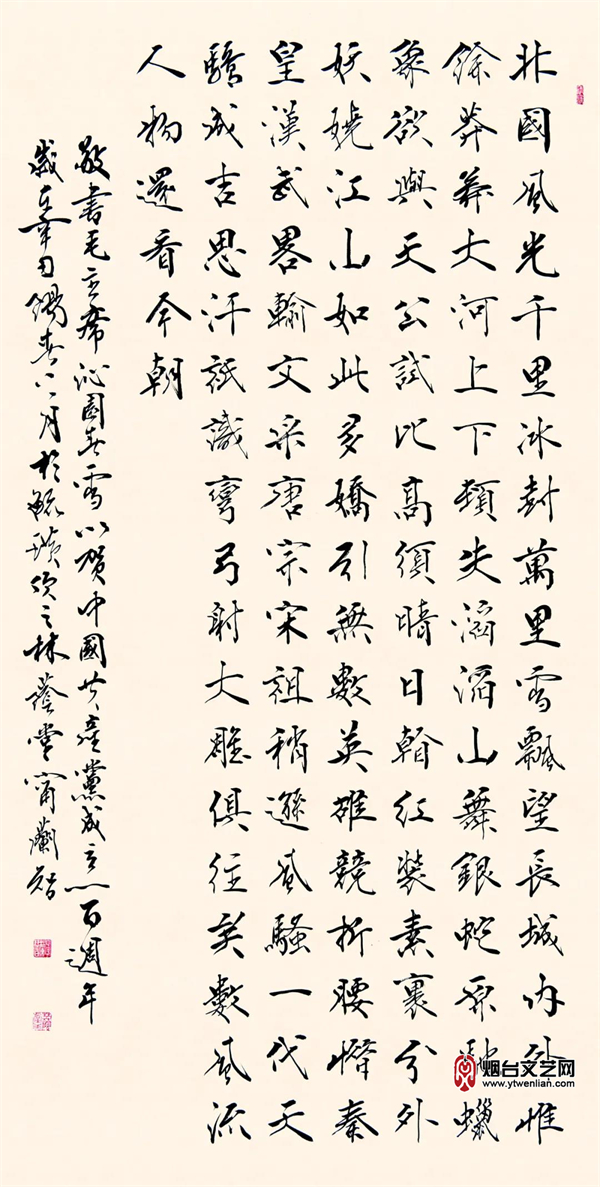 北國風光千里冰封萬里雪飄望長城内外惟
餘莽莽大河上下頓失滔滔山舞銀蛇原馳蠟
象欲與天公試比高須晴日看紅裝素裹分外
妖嬈江山如此多嬌引無數英雄競折腰惜秦
皇漢武畧輸文采唐宗宋祖稍遜風騷一代天
驕成吉思汗祇識彎弓射大雕俱往矣數風流
人物還看今朝
敬書毛主席沁園春雪以賀中國共産黨成立一百週年
歲在辛丑陽春八月於毓璜頂之林蔭堂甯蘭智
烟台文艺网
www.ytwenlian.com